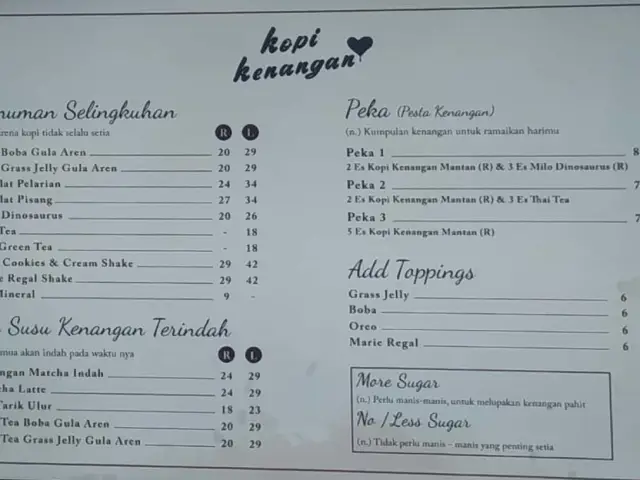 kopi
kenangan
numan Selingkuhan
rena kopi tidak selalu setia
R L
Boba Gula Aren 20 29
Grass Jelly Gula Aren 20 29
lat Pelarian 24 34
lat Pisang 27 34
Dinosaurus 20 26
Tea - 18
Green Tea - 18
Cookies & Cream Shake 29 42
e Regal Shake 29 42
Mineral 9 -
Susu Kenangan Terindah
mua akan indah pada waktu nya
R L
ngan Matcha Indah 24 29
cha Latte 24 29
Tarik Ulur 18 23
Tea Boba Gula Aren 20 29
Tea Grass Jelly Gula Aren 20 29
Peka (Pesta Kenangan)
(n.) Kumpulan kenangan untuk ramaikan harimu
Peka 1 8
2 Es Kopi Kenangan Mantan (R) & 3 Es Milo Dinosaurus (R)
Peka 2 7
2 Es Kopi Kenangan Mantan (R) & 3 Es Thai Tea
Peka 3 7
5 Es Kopi Kenangan Mantan (R)
Add Toppings
Grass Jelly 6
Boba 6
Oreo 6
Marie Regal 6
More Sugar
(n.) Perlu manis-manis, untuk melupakan kenangan pahit
No / Less Sugar
(n.) Tidak perlu manis - manis yang penting setia